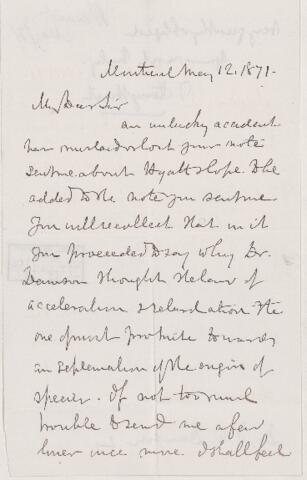 Montreal May 12. 1871.
My Dear Sir
an unlucky accident
has mislaid or lost your note
sent me about Hyatt & Cope to be
added to the note you sent me
You will recollect that in it
you proceeded to say why Dr.
Dawson thought the law of
acceleration & retardation the
one of most promise towards
an explanation of the origin of
species. If not too much
trouble to send me a few
lines once more. I shall feel